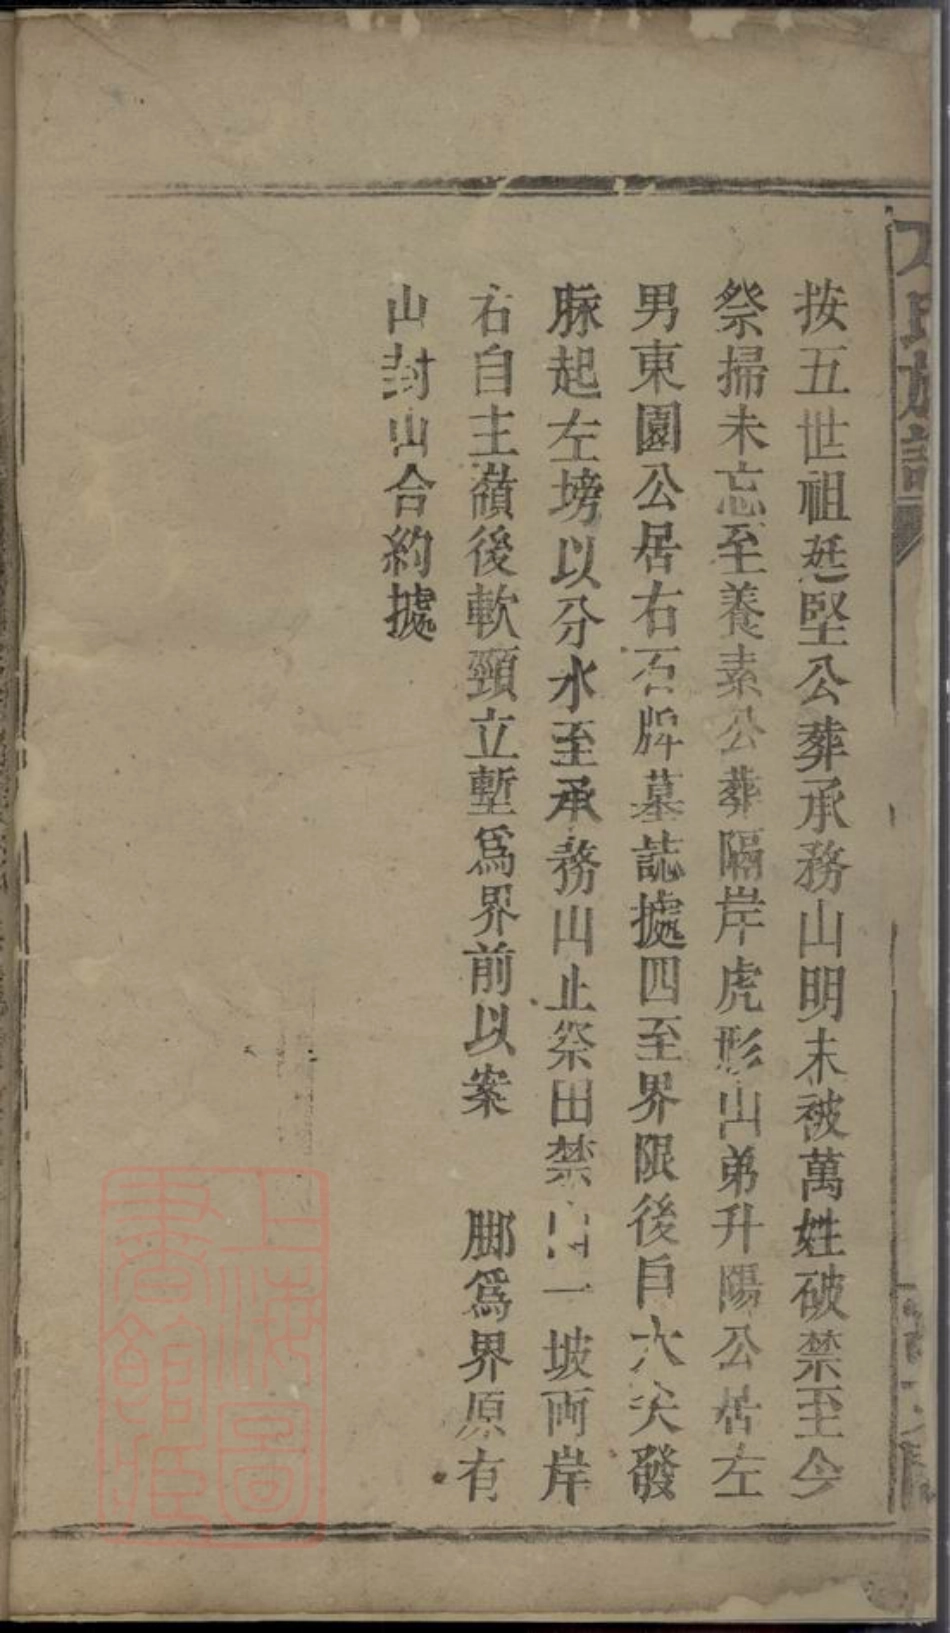 按五世祖彂堅公葬承務山明末被萬姓破禁至今
祭掃未忘至養素公葬隔岸虎形山弟升陽公居左
男東園公居右石牌墓誌據四至界限後自大尖發
脉起左塝以分水至承務山止祭田禁一坡両岸
右自主嶺後軟頸立塹爲界前以案 脚爲界原有
山封山合約據
氏族譜
上海圖書館藏